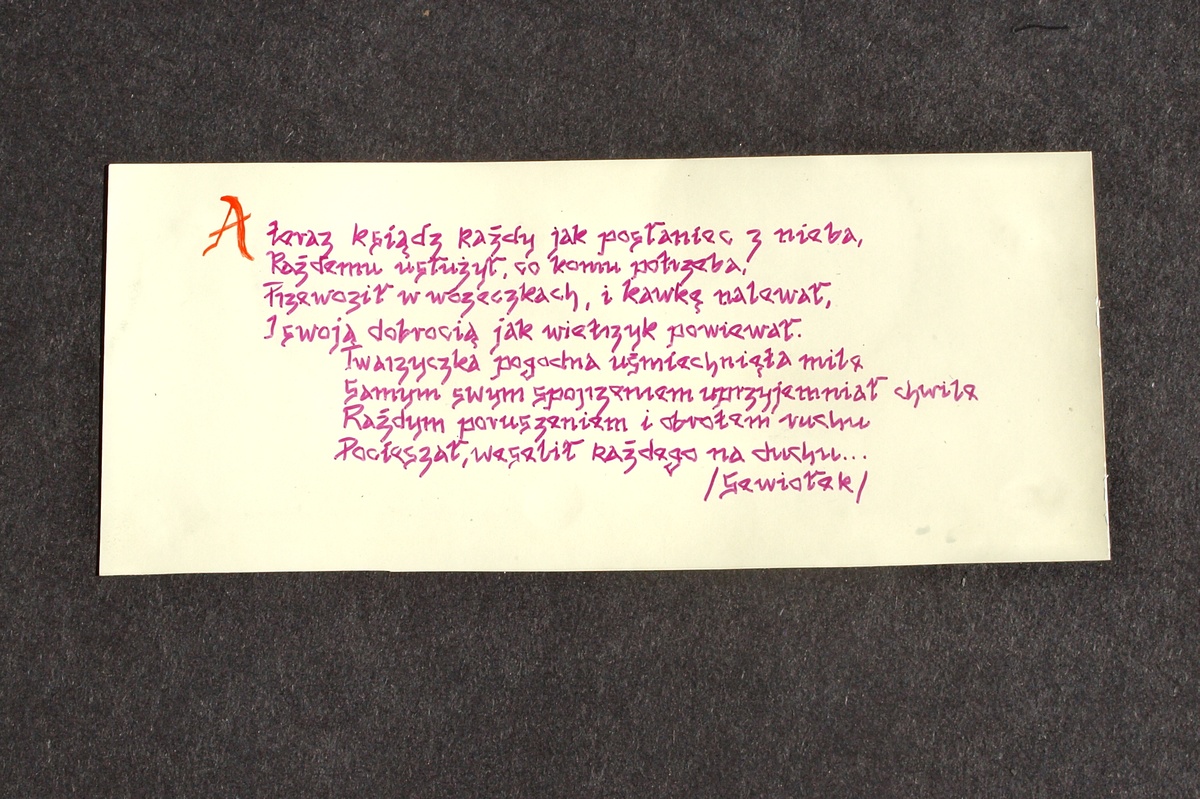 A teraz ksiądz każdy jak posłaniec z nieba,
Każdemu usłużył, co komu potrzeba,
Przewoził w wózeczkach, i kawkę nalewał,
I swoją dobrocią jak wietrzyk powiewał.
Twarzyczka pogodna uśmiechnięta mile
Samym swym spojrzeniem uprzyjemniał chwile
Każdym poruszeniem i obrotem ruchu
Pocieszał, weselił każdego na duchu...
/Sewiołek/